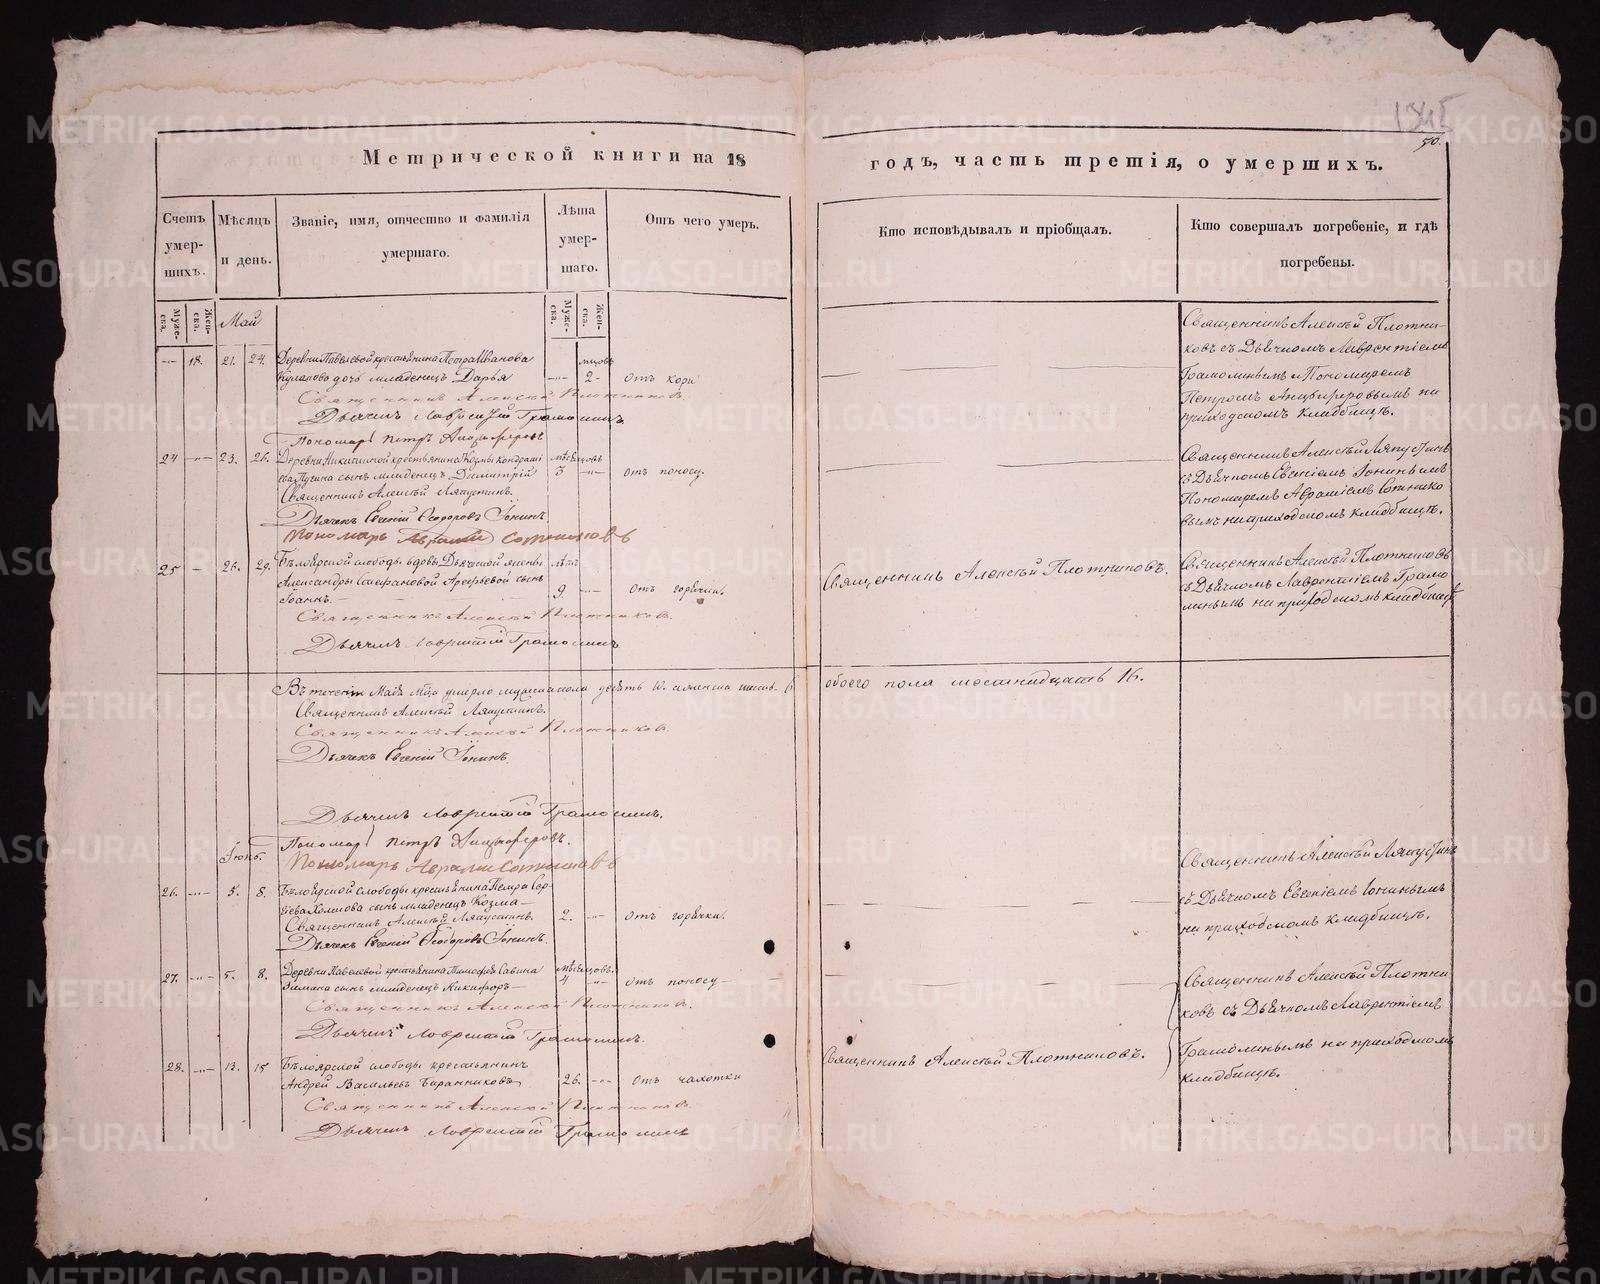 1845
50.
Метрической книги на 18 годъ, часть третія, о умершихъ.
Счетъ умер-
шихъ.
Мѣсяцъ
и день.
Званіе, имя, отчество и фамилія
умершаго.
Лѣта
умер-
шаго.
Отъ чего умеръ.
Кто исповѣдывалъ и пріобщалъ.
Кто совершалъ погребеніе, и гдѣ
погребены.
Муже-
ска.
Жен-
ска.
Май
Муже-
ска.
Жен-
ска.
18. 21. 24. Деревни Павлевой крестьянина Петра Иванова
дочь младенецъ Дарья 2 отъ кори
Священникъ Алексѣй Плотниковъ.
Дьячекъ Лаврентій Грамолинъ
Пономарь Петръ
Священникъ Алексѣй Плотни-
ковъ съ Дьячкомъ Лаврентіемъ
Грамолинымъ и Пономаремъ
Петромъ на
приходскомъ кладбищѣ.
24 23. 26. Деревни крестьянина Козмы Кондрать
ева сынъ младенецъ Димитрій 3 отъ поносу.
Священникъ Алексѣй Ляпустинъ.
Дьячекъ Евгеній Ѳеодоровъ Іонинъ
Пономарь Аврамій Сотниковъ
Священникъ Алексѣй Ляпустинъ
съ Дьячкомъ Евгеніемъ Іонинымъ
Пономаремъ Авраміемъ Сотнико
вымъ на приходскомъ кладбищѣ.
25 26. 29. Бѣлоярской слободы вдовы Дьячской жены
Александры Стефановой Арефьевой сынъ
Іоаннъ. 9 отъ горячки.
Священникъ Алексѣй Плотниковъ.
Дьячекъ Лаврентій Грамолинъ
Священникъ Алексѣй Плотниковъ.
Священникъ Алексѣй Плотниковъ
съ Дьячкомъ Лаврентіемъ Грамо
линымъ на приходскомъ кладбищѣ
Въ теченіи Маія мца умерло мужеска пола десять 10. женска шесть 6 обоего пола шестнадцать 16.
Священникъ Алексѣй Ляпустинъ.
Священникъ Алексѣй Плотниковъ.
Дьячекъ Евгеній Іонинъ.
Дьячекъ Лаврентій Грамолинъ.
Пономарь Петръ
Пономарь Аврамій Сотниковъ
Іюнь.
26. 5. 8. Бѣлоярской слободы крестьянина Петра Сер-
геева сынъ младенецъ Козма
Священникъ Алексѣй Ляпустинъ. 2. отъ горячки.
Дьячекъ Евгеній Ѳеодоровъ Іонинъ.
Священникъ Алексѣй Ляпустинъ
съ Дьячкомъ Евгеніемъ Іонинымъ
на приходскомъ кладбищѣ.
27. 5. 8. Деревни Павлевой крестьянина Тимофея Савина мѣсяцовъ.
сынъ младенецъ Никифоръ 4 отъ поносу
Священникъ Алексѣй Плотниковъ.
Дьячекъ Лаврентій Грамолинъ.
Священникъ Алексѣй Плотни
ковъ съ Дьячкомъ Лаврентіемъ
Грамолинымъ на приходскомъ
кладбищѣ.
28. 13. 15 Бѣлоярской слободы крестьянинъ
Андрей Васильевъ Баранниковъ 26. отъ чахотки
Священникъ Алексѣй Плотниковъ.
Священникъ Алексѣй Плотниковъ
Дьячекъ Лаврентій Грамолинъ
METRIKI.GASO-URAL.RU